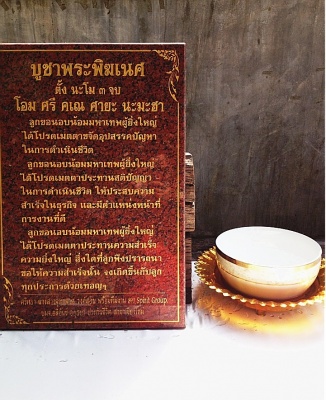 บูชาพระพิฆเนศ
ตั้ง นะโม ๓ จบ
โอม ศรี คเณ ศายะ นะมะฮา
ลูกขอนอบน้อมมหาเทพผู้ยิ่งใหญ่
ได้โปรดเมตตาขจัดอุปสรรคปัญหา
ในการดำเนินชีวิต
ลูกขอนอบน้อมมหาเทพผู้ยิ่งใหญ่
ได้โปรดเมตตาประทานสติปัญญา
ในการดำเนินชีวิต ให้ประสบความ
สำเร็จในธุรกิจ และมีตำแหน่งหน้าที่
การงานที่ดี
ลูกขอนอบน้อมมหาเทพผู้ยิ่งใหญ่
ได้โปรดเมตตาประทานความสำเร็จ
ความยิ่งใหญ่ สิ่งใดที่ลูกพึงปรารถนา
ขอให้ความสำเร็จนั้น จงเกิดขึ้นกับลูก
ทุกประการด้วยเทอญฯ
Spirit Group